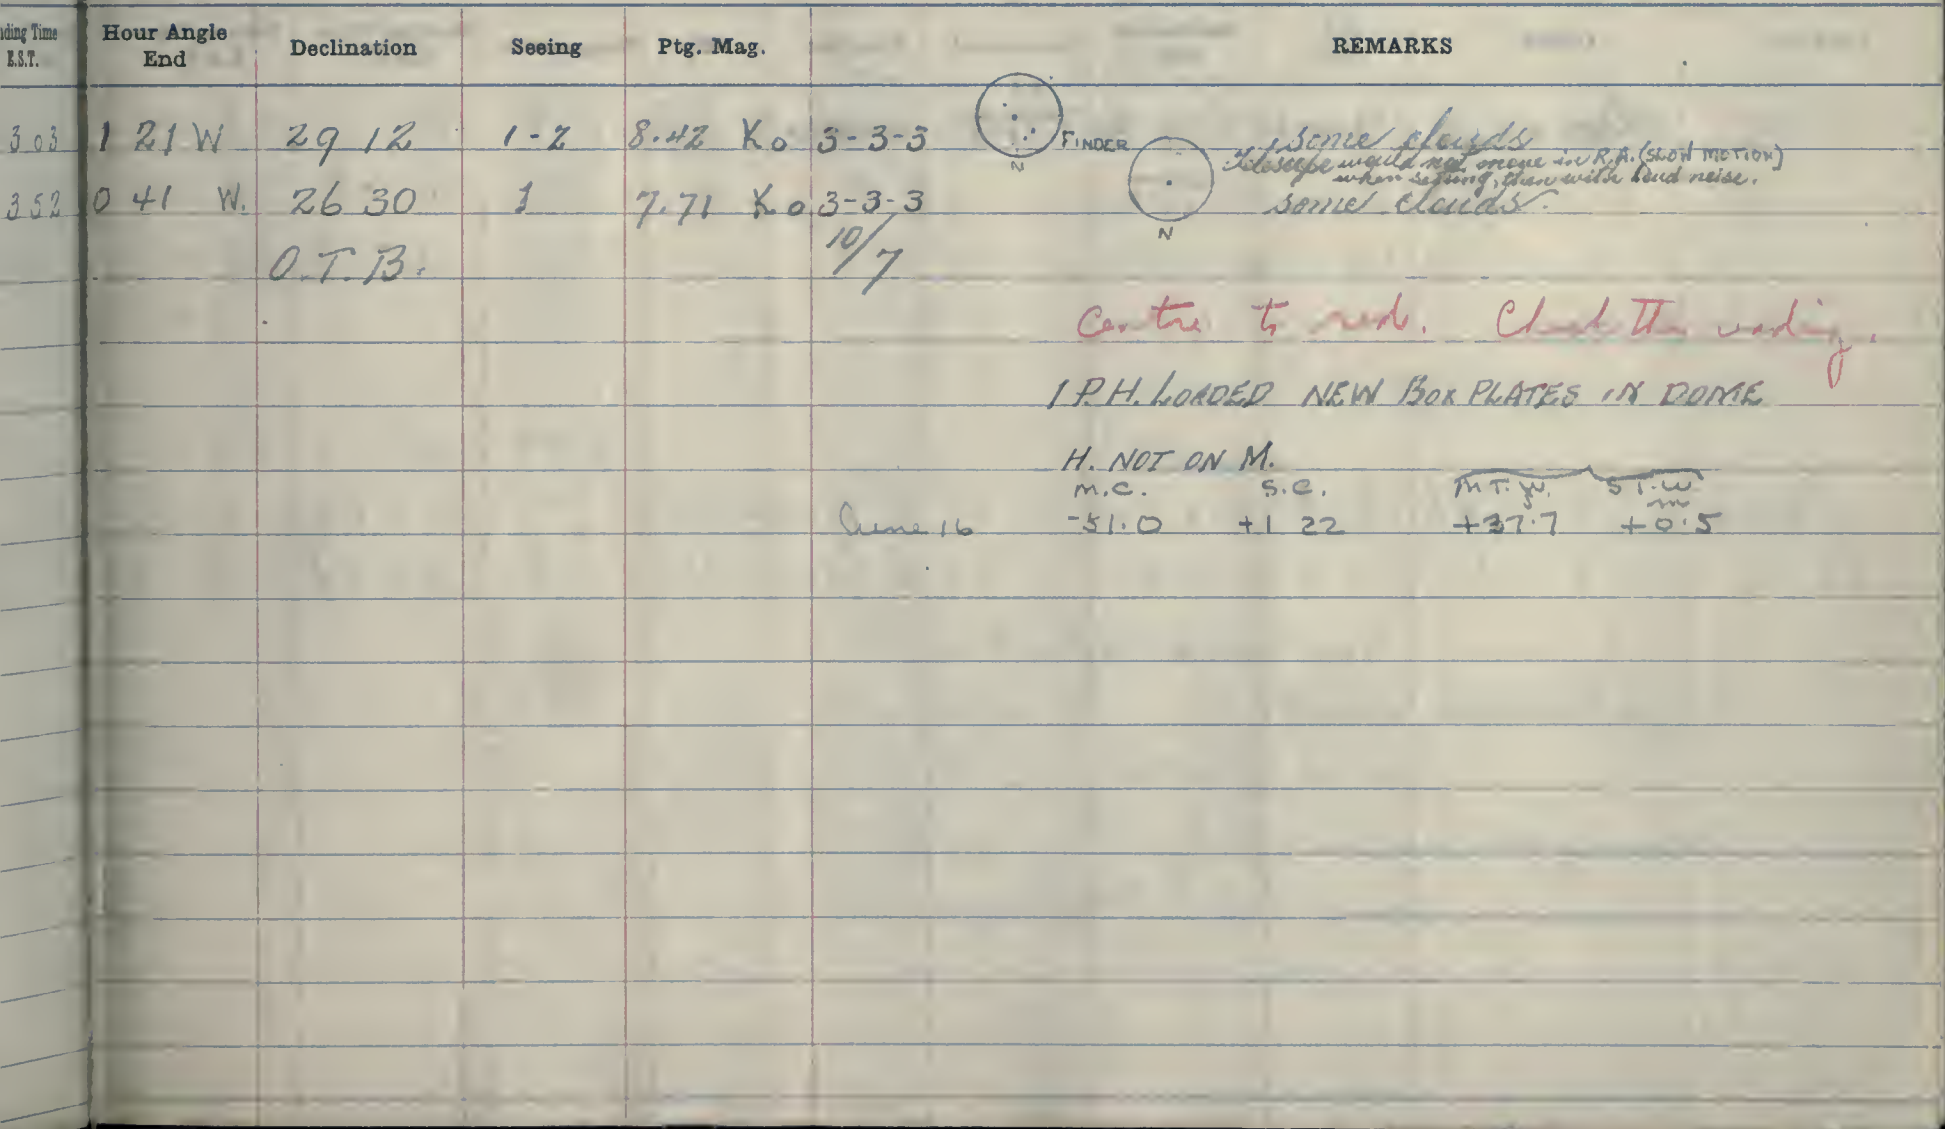 ding Time E.S.T. Hour Angle End Declination Seeing Ptg. Mag. REMARKS
3 03 1 21 W 29 12 1-2 8.42 Ko 3-3-3 FINDER N some clouds
Telescope would not move in R.A. (SLOW MOTION)
when setting, then with loud noise.
3 52 0 41 W. 26 30 1 7.71 Ko 3-3-3 N some clouds.
O.T.B. 10/7
Centre to red. Check this reading.
1 P.H. LOADED NEW BOX PLATES IN DOME
H. NOT ON M.
M.C. S.C. M T.W. S T.W
June 16 -51.0 +1 22 +37.7 +0.5 m